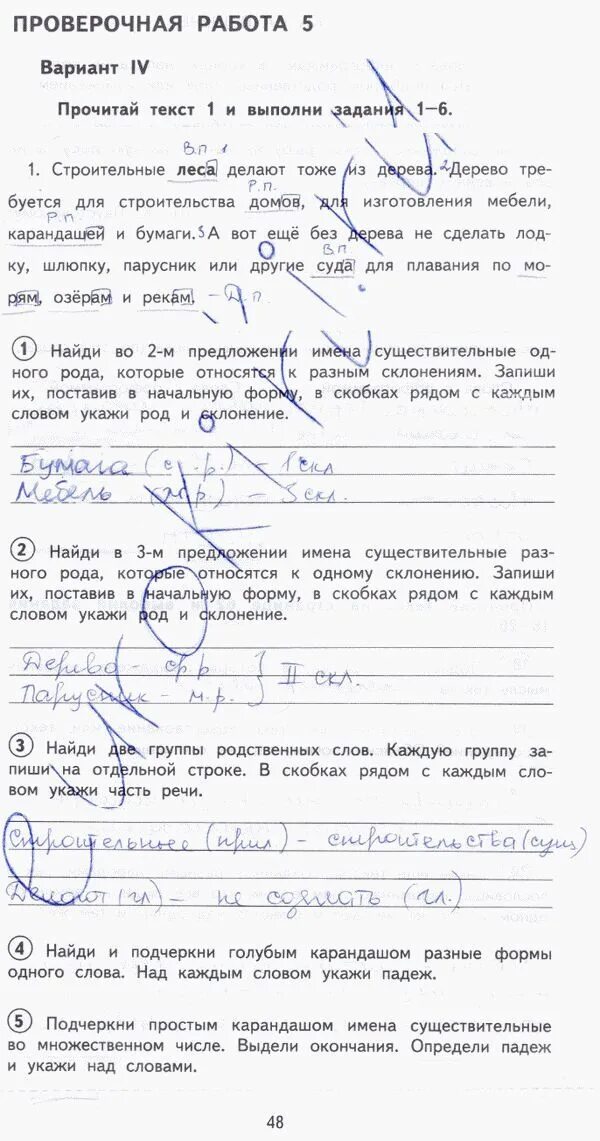 ПРОВЕРОЧНАЯ РАБОТА 5
Вариант IV
Прочитай текст 1 и выполни задания 1–6.
В.п. 1
1. Строительные леса делают тоже из дерева. 2 Дерево тре-
Р.п.
буется для строительства домов, для изготовления мебели,
Р.п.
карандашей и бумаги. 3 А вот ещё без дерева не сделать лод-
В.п.
ку, шлюпку, парусник или другие суда для плавания по мо-
рям, озёрам и рекам. – Д.п.
1 Найди во 2-м предложении имена существительные од-
ного рода, которые относятся к разным склонениям. Запиши
их, поставив в начальную форму, в скобках рядом с каждым
словом укажи род и склонение.
Бумага (с.р.) – 1 скл
Мебель (ж.р.) – 3 скл.
2 Найди в 3-м предложении имена существительные раз-
ного рода, которые относятся к одному склонению. Запиши
их, поставив в начальную форму, в скобках рядом с каждым
словом укажи род и склонение.
Дерево – ср.р
Парусник – м.р. } II скл.
3 Найди две группы родственных слов. Каждую группу за-
пиши на отдельной строке. В скобках рядом с каждым сло-
вом укажи часть речи.
Строительные (прил) – строительства (сущ)
Делают (гл) – не сделать (гл.)
4 Найди и подчеркни голубым карандашом разные формы
одного слова. Над каждым словом укажи падеж.
5 Подчеркни простым карандашом имена существительные
во множественном числе. Выдели окончания. Определи падеж
и укажи над словами.
48